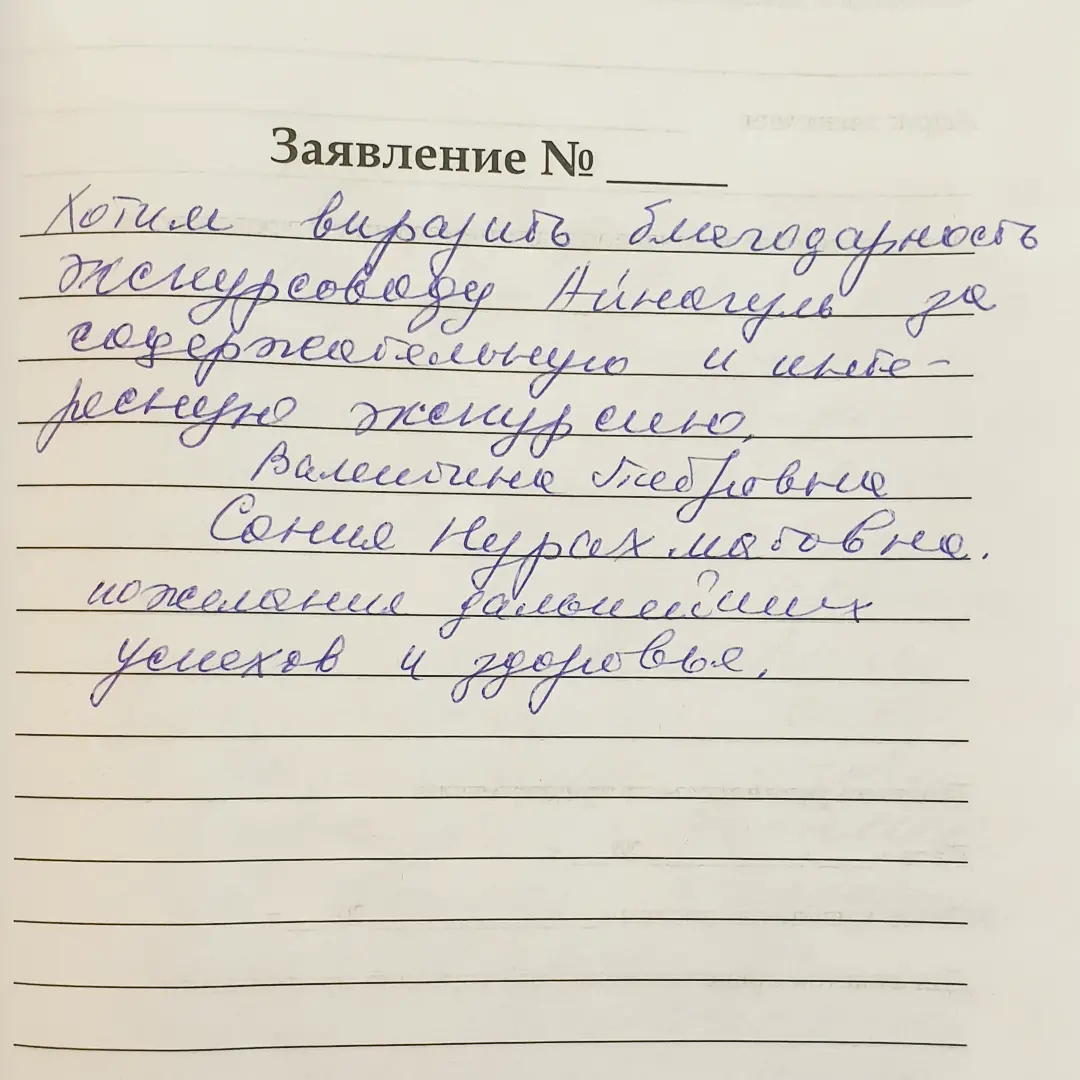 Заявление № ____
Хотим выразить благодарность
экскурсоводу Айнагуль за
содержательную и инте-
ресную экскурсию.
Валентина Петровна
Сания Нурахматовна.
пожелания дальнейших
успехов и здоровья.